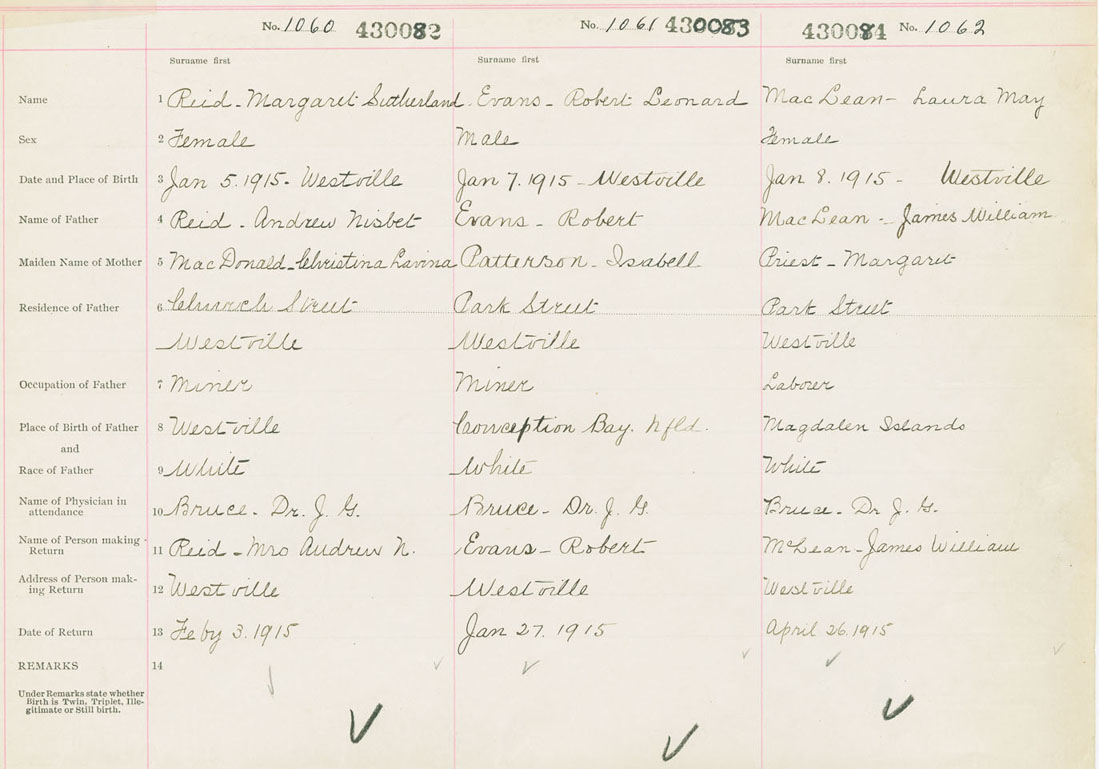 No. 1060 430082 No. 1061 430083 430084 No. 1062
Surname first Surname first Surname first
Name 1 Reid - Margaret Sutherland Evans - Robert Leonard MacLean - Laura May
Sex 2 Female Male Female
Date and Place of Birth 3 Jan 5. 1915 - Westville Jan 7. 1915 - Westville Jan 8. 1915 - Westville
Name of Father 4 Reid - Andrew Nisbet Evans - Robert MacLean - James William
Maiden Name of Mother 5 MacDonald - Christina Lavina Patterson - Isabell Priest - Margaret
Residence of Father 6 Church Street Park Street Park Street
Westville Westville Westville
Occupation of Father 7 Miner Miner Laborer
Place of Birth of Father 8 Westville Conception Bay. Nfld. Magdalen Islands
and
Race of Father 9 White White White
Name of Physician in
attendance 10 Bruce - Dr. J. G. Bruce - Dr. J. G. Bruce - Dr J. G.
Name of Person making
Return 11 Reid - Mrs Andrew N. Evans - Robert McLean - James William
Address of Person mak-
ing Return 12 Westville Westville Westville
Date of Return 13 Feby 3. 1915 Jan 27. 1915 April 26. 1915
REMARKS 14
Under Remarks state whether
Birth is Twin, Triplet, Ille-
gitimate or Still birth.